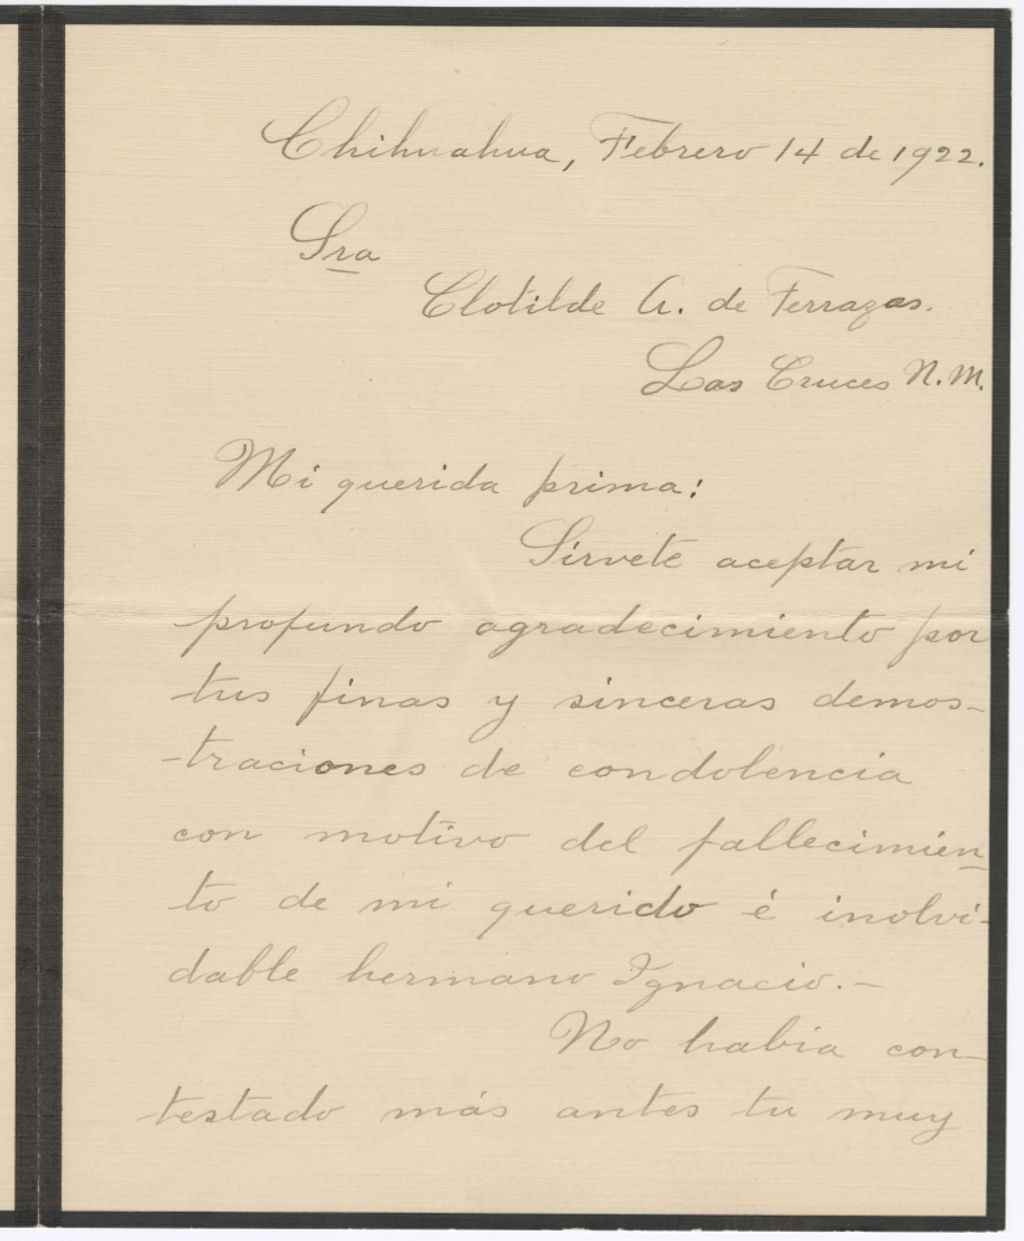 Chihuahua, Febrero 14 de 1922.
Sra
Clotilde A. de Terrazas.
Las Cruces N.M.
Mi querida prima:
Sirvete aceptar mi
profundo agradecimiento por
tus finas y sinceras demos-
traciones de condolencia
con motivo del fallecimien
to de mi querido é inolvi-
dable hermano Ignacio.-
No habia con-
testado más antes tu muy